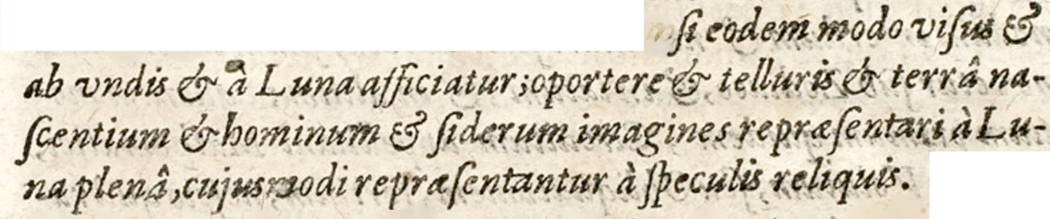 ſi eodem modo viſus &
ab vndis & à Luna afficiatur; oportere & telluris & terrâ na-
ſcentium & hominum & ſiderum imagines repræſentari à Lu-
na plenâ, cujusmodi repræſentantur à ſpeculis reliquis.